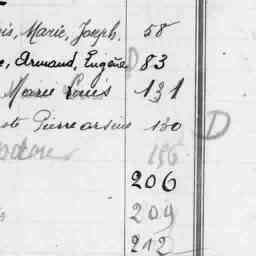 is, Marie, Joseph. 58
e, Armand, Eugène D 83
Marie Louis 131
Pierre arsène 130 D
156
206
209
212